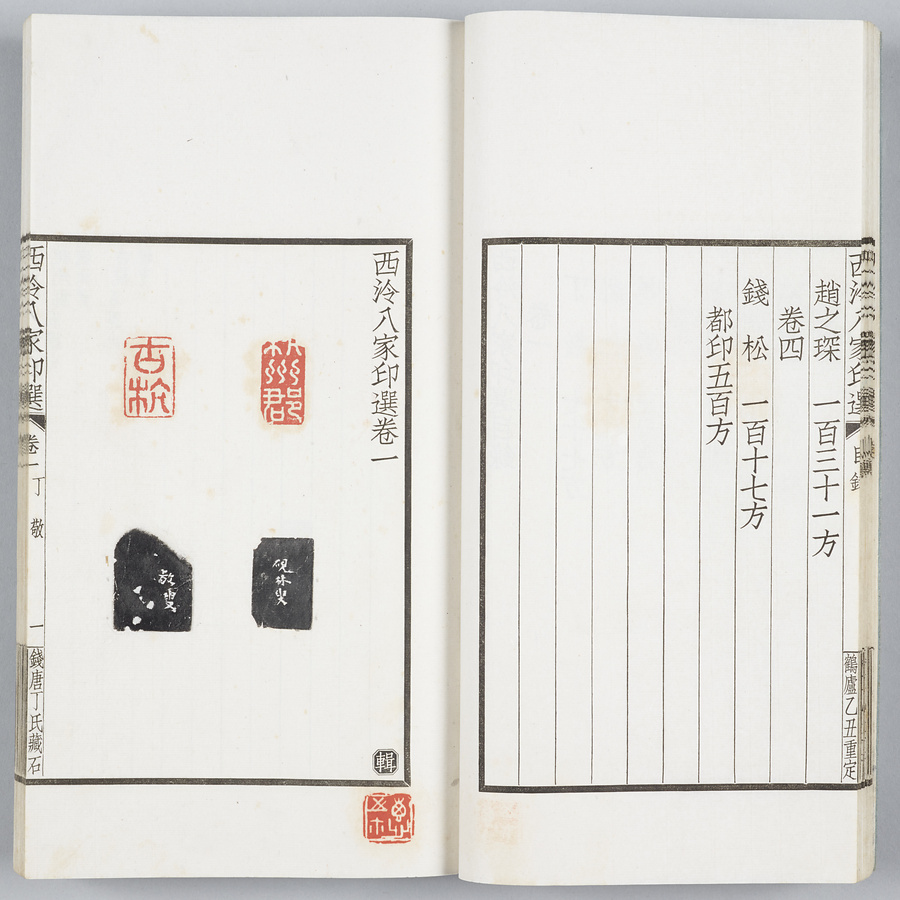 趙之琛 一百三十一方
卷四
錢松 一百十七方
都印五百方
西泠八家印選
目錄
鶴廬乙丑重定
西泠八家印選卷一
古杭
硯林叟
敬叟
輯
西泠八家印選
卷一 丁敬
一
錢唐丁氏藏石